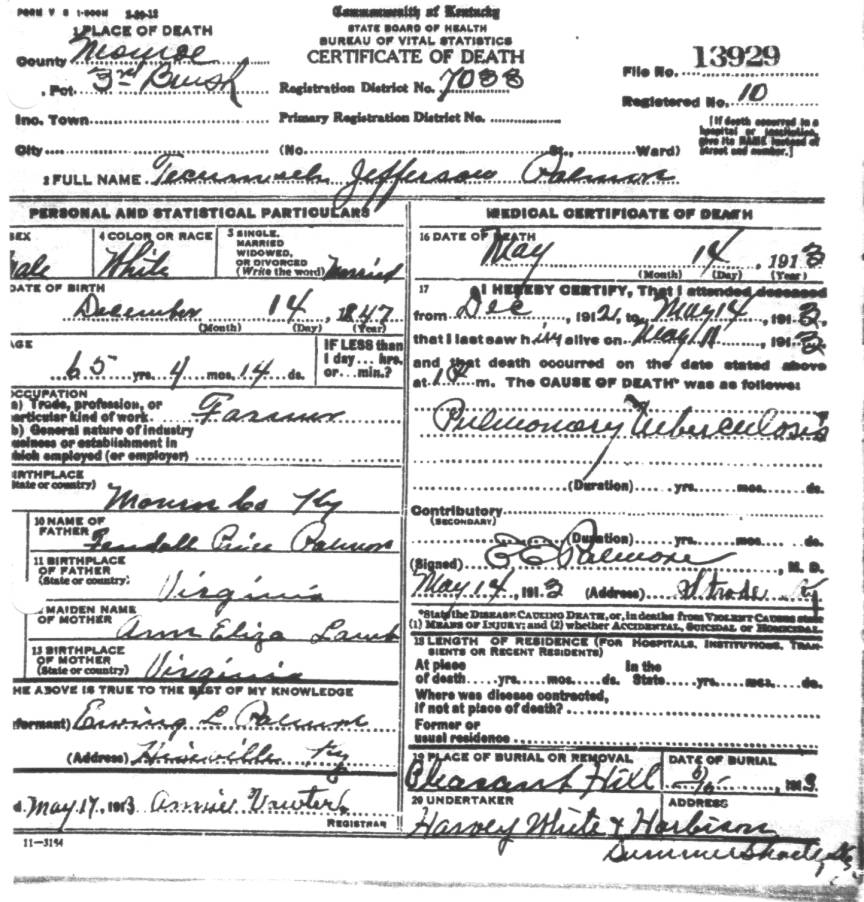 FORM V S 1-500M 3-29-12
Commonwealth of Kentucky
STATE BOARD OF HEALTH
BUREAU OF VITAL STATISTICS
CERTIFICATE OF DEATH
1 PLACE OF DEATH
County Monroe
Pct 3rd
Inc. Town
City (No. St., Ward)
Registration District No. 7033
Primary Registration District No.
File No. 13929
Registered No. 10
[If death occurred in a
hospital or institution,
give its NAME instead of
street and number.]
2 FULL NAME Tecumseh Jefferson Palmore
PERSONAL AND STATISTICAL PARTICULARS
SEX
Male
4 COLOR OR RACE
White
5 SINGLE,
MARRIED
WIDOWED,
OR DIVORCED
(Write the word) Married
DATE OF BIRTH
December 14, 1847
(Month) (Day) (Year)
AGE
65 yrs. 4 mos. 14 ds.
IF LESS than
1 day... hrs.
or... min.?
OCCUPATION
a) Trade, profession, or
articular kind of work Farmer
b) General nature of industry
usiness or establishment in
hich employed (or employer)
BIRTHPLACE
State or country)
Monroe Co Ky
10 NAME OF
FATHER
Price Palmore
11 BIRTHPLACE
OF FATHER
(State or country)
Virginia
MAIDEN NAME
OF MOTHER
Ann Eliza Lamb
13 BIRTHPLACE
OF MOTHER
(State or country)
Virginia
HE ABOVE IS TRUE TO THE BEST OF MY KNOWLEDGE
nformant) Ewing L Palmore
(Address) Ky
d. May 17, 1913 Annie
REGISTRAR
11-3194
MEDICAL CERTIFICATE OF DEATH
16 DATE OF DEATH
May 14, 1913
(Month) (Day) (Year)
17 I HEREBY CERTIFY, That I attended deceased
from Dec, 1912, to May 14, 1913,
that I last saw him alive on May 11, 1913
and that death occurred on the date stated above
at 1 P m. The CAUSE OF DEATH* was as follows:
Pulmonary Tuberculosis
(Duration) yrs. mos. ds.
Contributory
(SECONDARY)
(Duration) yrs. mos. ds.
(Signed) Palmore, M. D.
May 14, 1913 (Address) Strode Ky
*State the DISEASE CAUSING DEATH, or, in deaths from VIOLENT CAUSES state
(1) MEANS OF INJURY; and (2) whether ACCIDENTAL, SUICIDAL or HOMICIDAL.
18 LENGTH OF RESIDENCE (FOR HOSPITALS, INSTITUTIONS, TRAN-
SIENTS OR RECENT RESIDENTS)
At place In the
of death yrs. mos. ds. State yrs. mos. ds.
Where was disease contracted,
if not at place of death?
Former or
usual residence
19 PLACE OF BURIAL OR REMOVAL
Pleasant Hill
DATE OF BURIAL
5/15, 1913
20 UNDERTAKER
Harvey White & Harbison
ADDRESS
Summer Shade, Ky